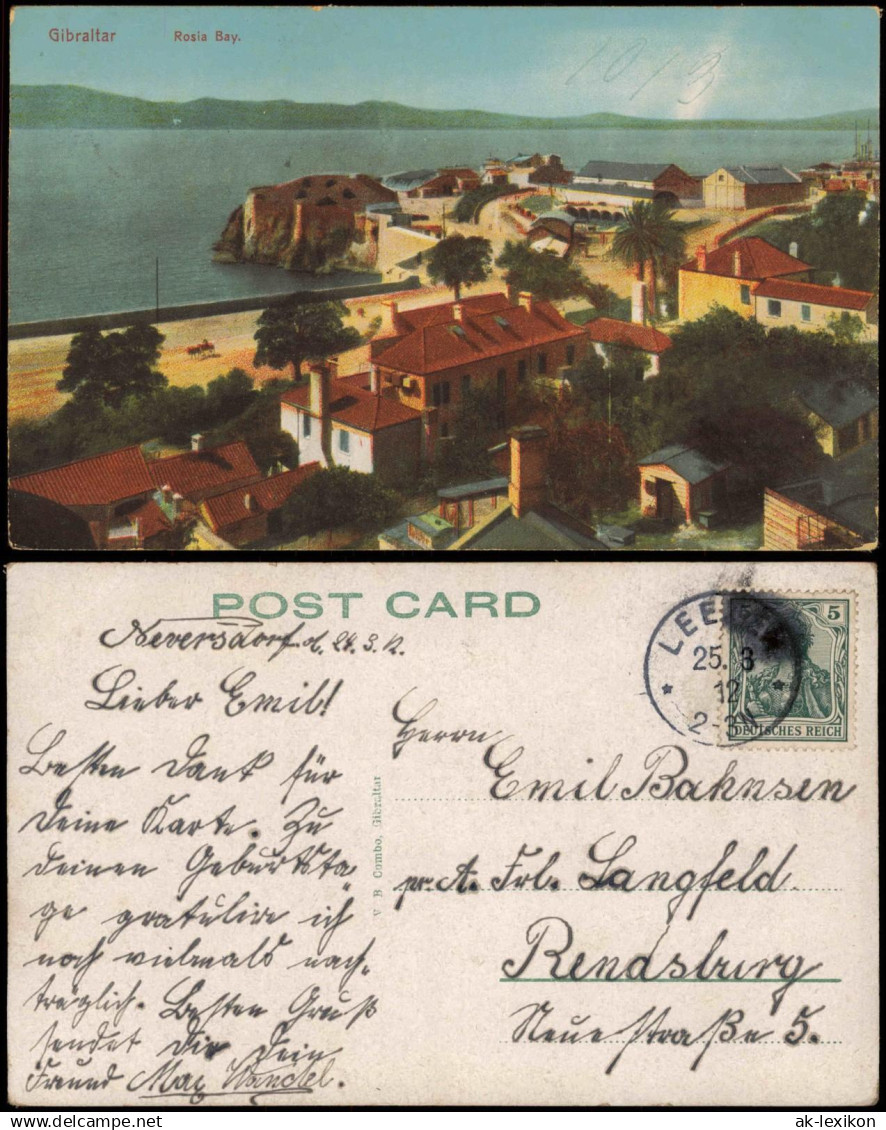 Gibraltar
Rosia Bay.
1013
POST CARD
Neversdorf d. 24.3.12.
Lieber Emil!
Besten Dank für
Deine Karte. Zu
Deinen Geburtsta„
ge gratulire ich
noch vielmals nach„
träglich. Besten Gruß
sendet Dir Dein
Freund Max Wandel.
V. B. Cumbo, Gibraltar
25. 3
12
2-3N
5
5
DEUTSCHES REICH
Herrn
Emil Bahnsen
pr. A. Frl. Langfeld.
Rendsburg
Neue Straße 5.
ak-lexikon